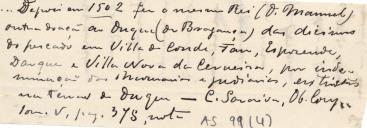 ... Depois em 1502 fez o mesmo Rei (D. Manuel)
outra doação ao Duque (de Bragança) das dizimas
do pescado em Villa do Conde, Fam, Espozende,
Darque e Villa Nova da Cerveira, por indem-
nização das Mourarias e judiarias, extinctas
nas terras do Duque — C. Saraiva, Ob. Comp.
tom. V, pag. 375, nota AS 99(4)